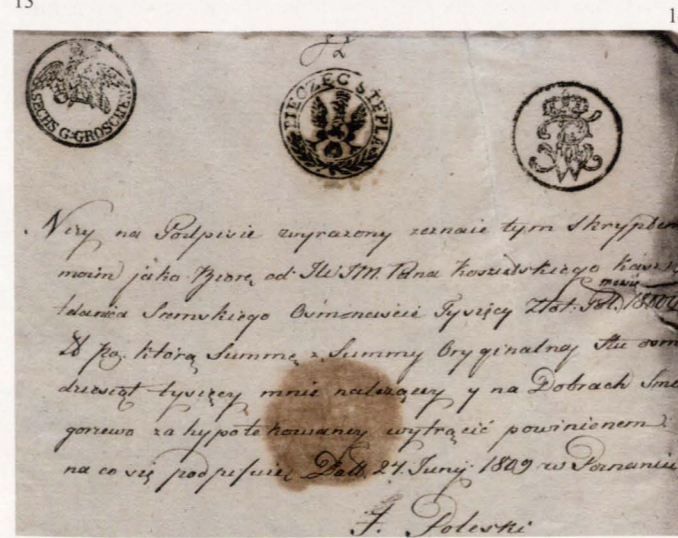 13
1
SECHS G: GROSCHE
PIECZĘC STĘPLA
Niżey na Podpisie wyrażony zeznaie tym Skryptem
moim jako Biorę od JW JM. Pana Koszutskiego
Sremskiego Ośmnaście Tysięcy Złot: Pol: mowię 18000
którą Summę z Summy Oryginalney Stu osm
dziesiąt tysięcy mnie należącey y na Dobrach Smo
gorzewo zahypotekowaney wytrącić powinienem
na co się podpisuię Datt. 24. Junij 1809 w Poznaniu
J. Poleski